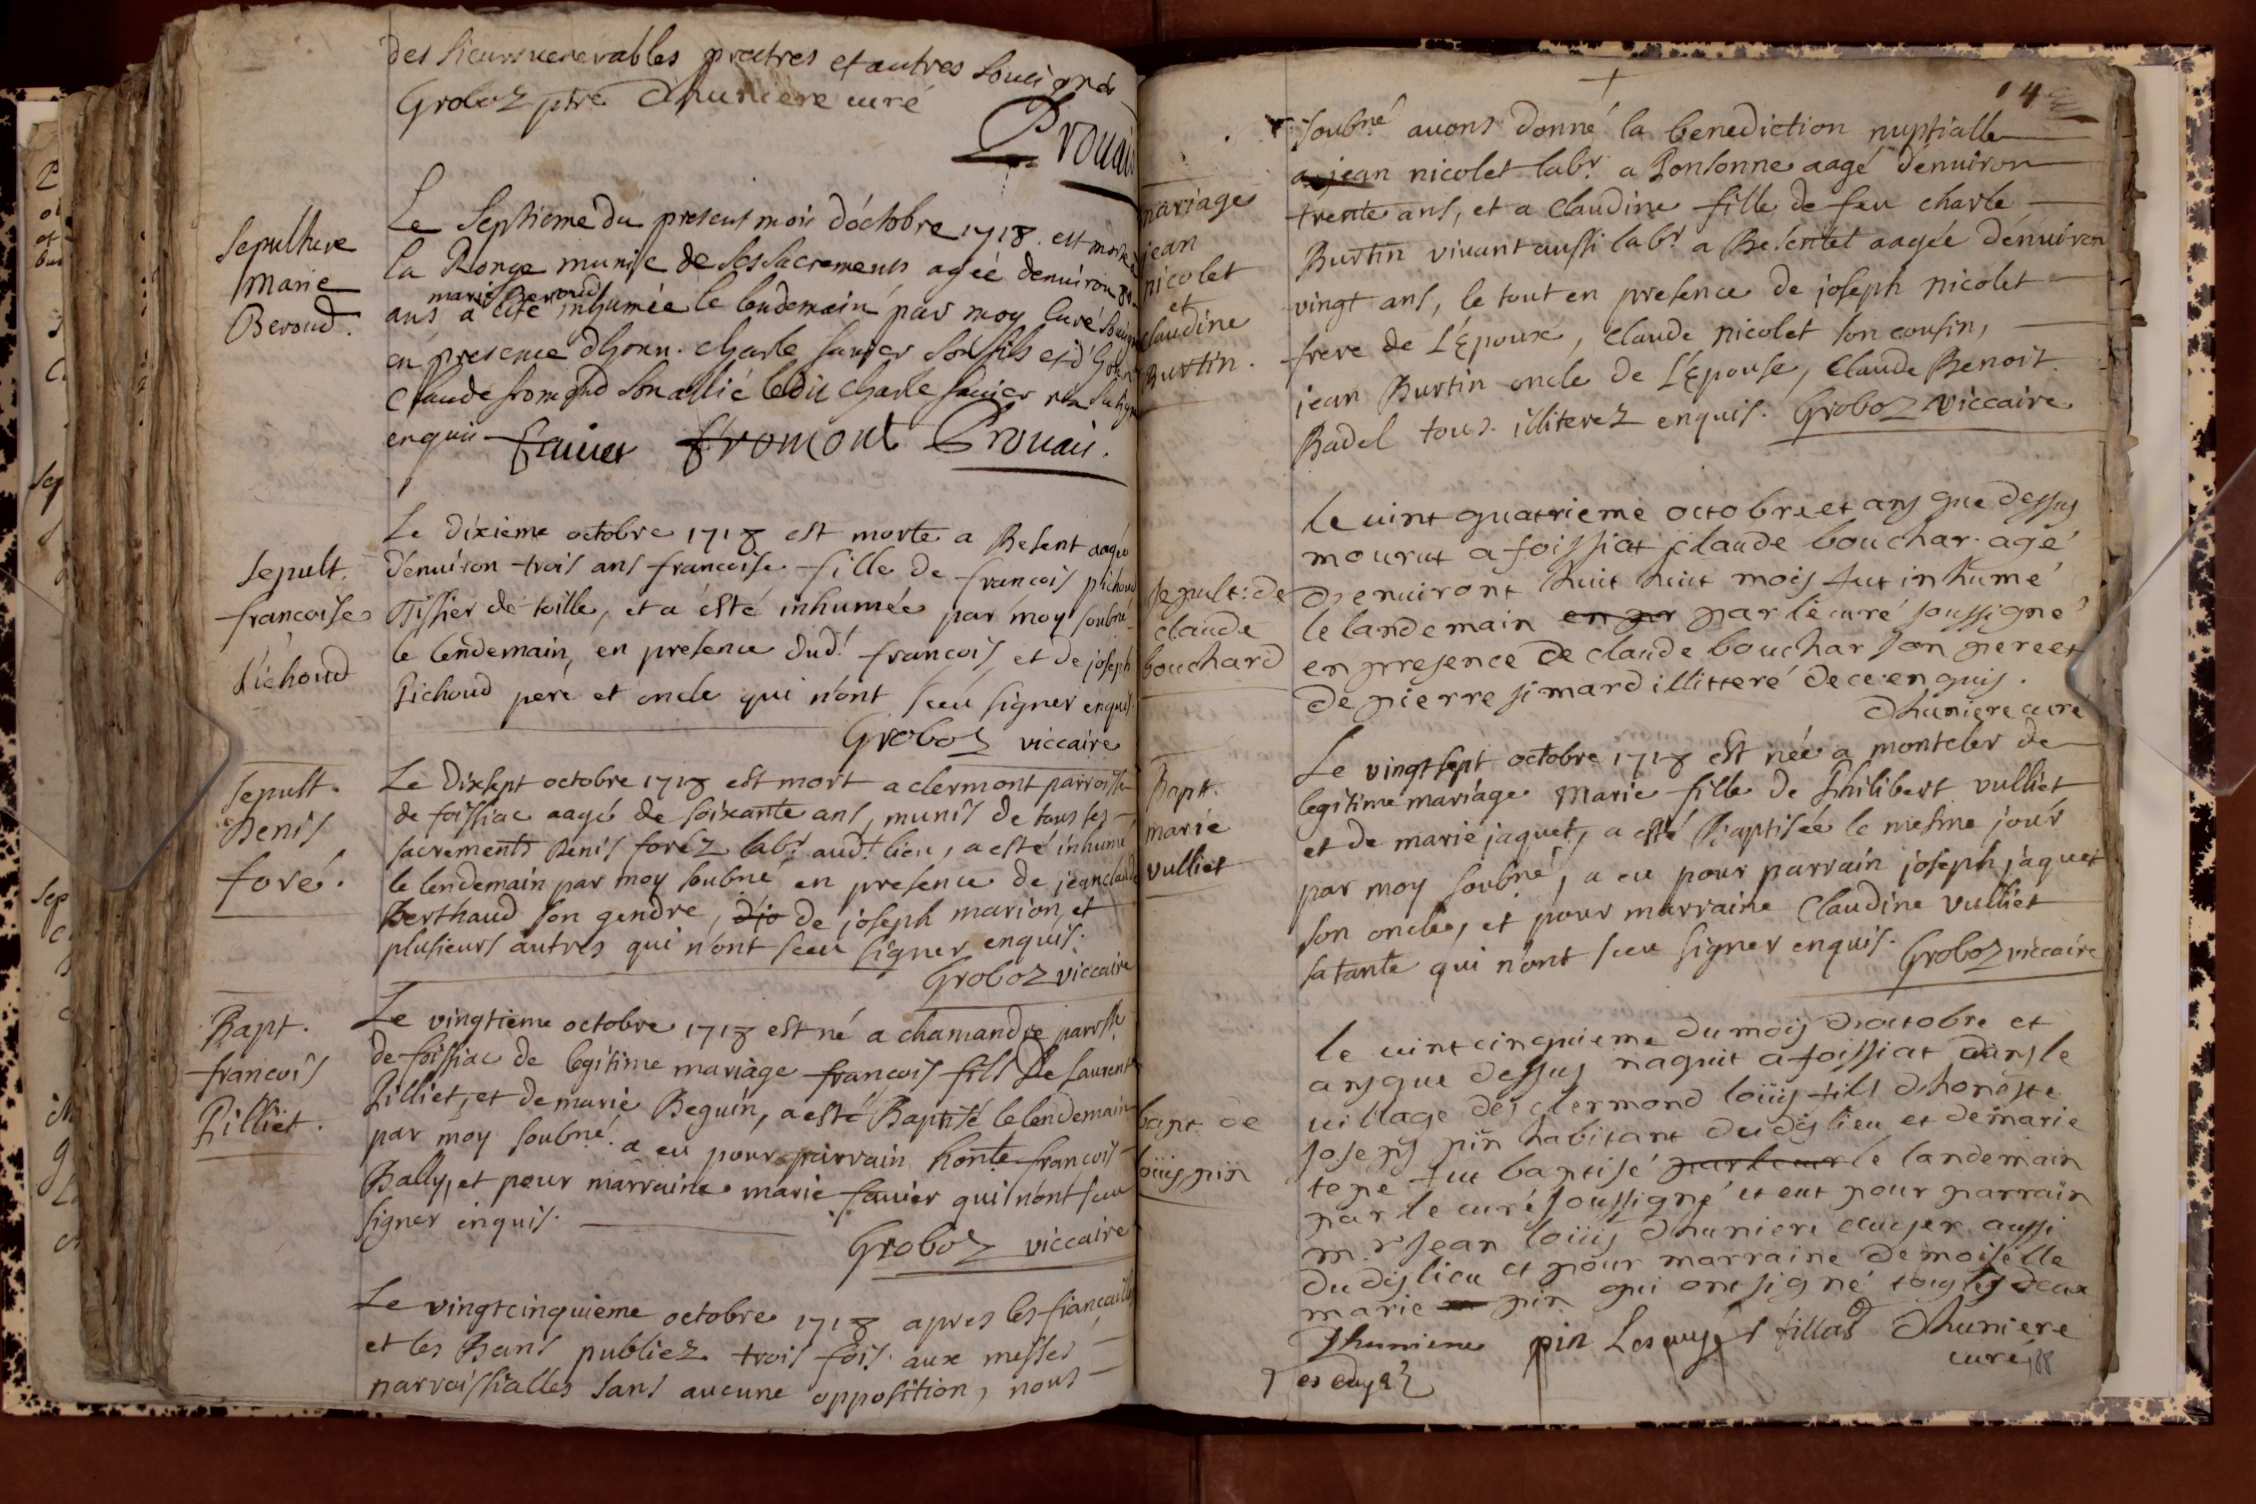 des sieurs venerables preatres et autres souügnés
Groboz ptre Dhuniere curé
Prouais
Sepulture
Marie
Beroud.
Le septieme du present mois d'octobre 1718. est morte a
la Ronge munie de ses sacrements agéé denuiron
marie Beroud
ans a eté inhumée le lendemain par moy curé
en presence dhonn. charle fauier son fils et d'
Claude fromond son allié ledit charle fauier
enquis fauier fromont Prouais.
Sepult.
francoise
Pichoud
Le dixieme octobre 1718 est morte a Besent aagée
denuiron trois ans francoise fille de francois pichoud
Tissier de toille, et a ésté inhumée par moy soubné
le lendemain, en presence dud.t francois et de joseph
Pichoud peré et oncle qui n'ont sceu signer enquis.
Groboz viccaire
Sepult.
Denis
foré.
Le dixsept octobre 1718 est mort a clermont parroisse
de foissiac aagé de soixante ans, munis de tous ses
sacrements Denis foréz lab.r aud.t lieu, a esté inhumé
le lendemain par moy soubné en presence de jean claude
Berthaud son gendre, d'jo de joseph marion, et
plusieurs autres qui n'ont sceu signer enquis.
Groboz viccaire
Bapt.
francois
Pilliet.
Le vingtieme octobre 1718 est né a chamandre parroisse
de foissiac de legitime mariage francois fils de Laurent
Pilliet, et de marie Beguin, a esté Baptisé le lendemain
par moy soubné. a eu pour parrain honte francois
Bally, et pour marraine marie fauier qui n'ont sceu
signer enquis.
Groboz viccaire
Le vingtcinquieme octobre 1718 apres les fiancailles
et les Bans publiez trois fois aux messes
parroissialles sans aucune opposition, nous
14
mariage
jean
nicolet
et
claudine
Burtin.
soubné auons donné la benediction nuptialle
a jean nicolet lab.r a Ronsonne aagé denuiron
trente ans, et a claudine fille de feu charle
Burtin viuant aussi lab.r a Besentet aagée denuiron
vingt ans, le tout en presence de joseph nicolet
frere de L'Epoux, Claude nicolet son cousin,
jean Burtin oncle de L'Epouse, Claude Benoit
Badel tous illiterez enquis. Groboz viccaire
sepult: de
claude
bouchard
le uint quatrieme octobre et ans que dessus
mourut a foissiat claude bouchar agé
d'enuiront huit huit mois fut inhumé
le landemain en par le curé soussigné
en presence de claude bouchar son pere et
de pierre simard illitteré de ce enquis.
dhuniere curé
Bapt.
marie
vulliet
Le vingt sept octobre 1718 est née a montcler de
legitime mariage Marie fille de Philibert vulliet
et de marie jaquet, a esté Baptisée le mesme jour
par moy soubné, a eu pour parrain joseph jaquet
son oncle, et pour marraine Claudine vulliet
sa tante qui n'ont sceu signer enquis. Groboz viccaire
bapt de
loüis pin
le uint cinquieme du mois d'octobre et
ans que dessus naquit a foissiat dans le
uillage des clermond loüis fils dhoneste
joseph pin habitant dudis lieu et demarie
tope fut baptisé par le cur le landemain
par le curé soussigné et eut pour parrain
m.r jean loüis dhuniere ecuyer aussi
dudis lieu et pour marraine demoiselle
marie pin qui ont signé tous les deux
Dhuniere pin Lescuyer fillas Dhuniere
curé